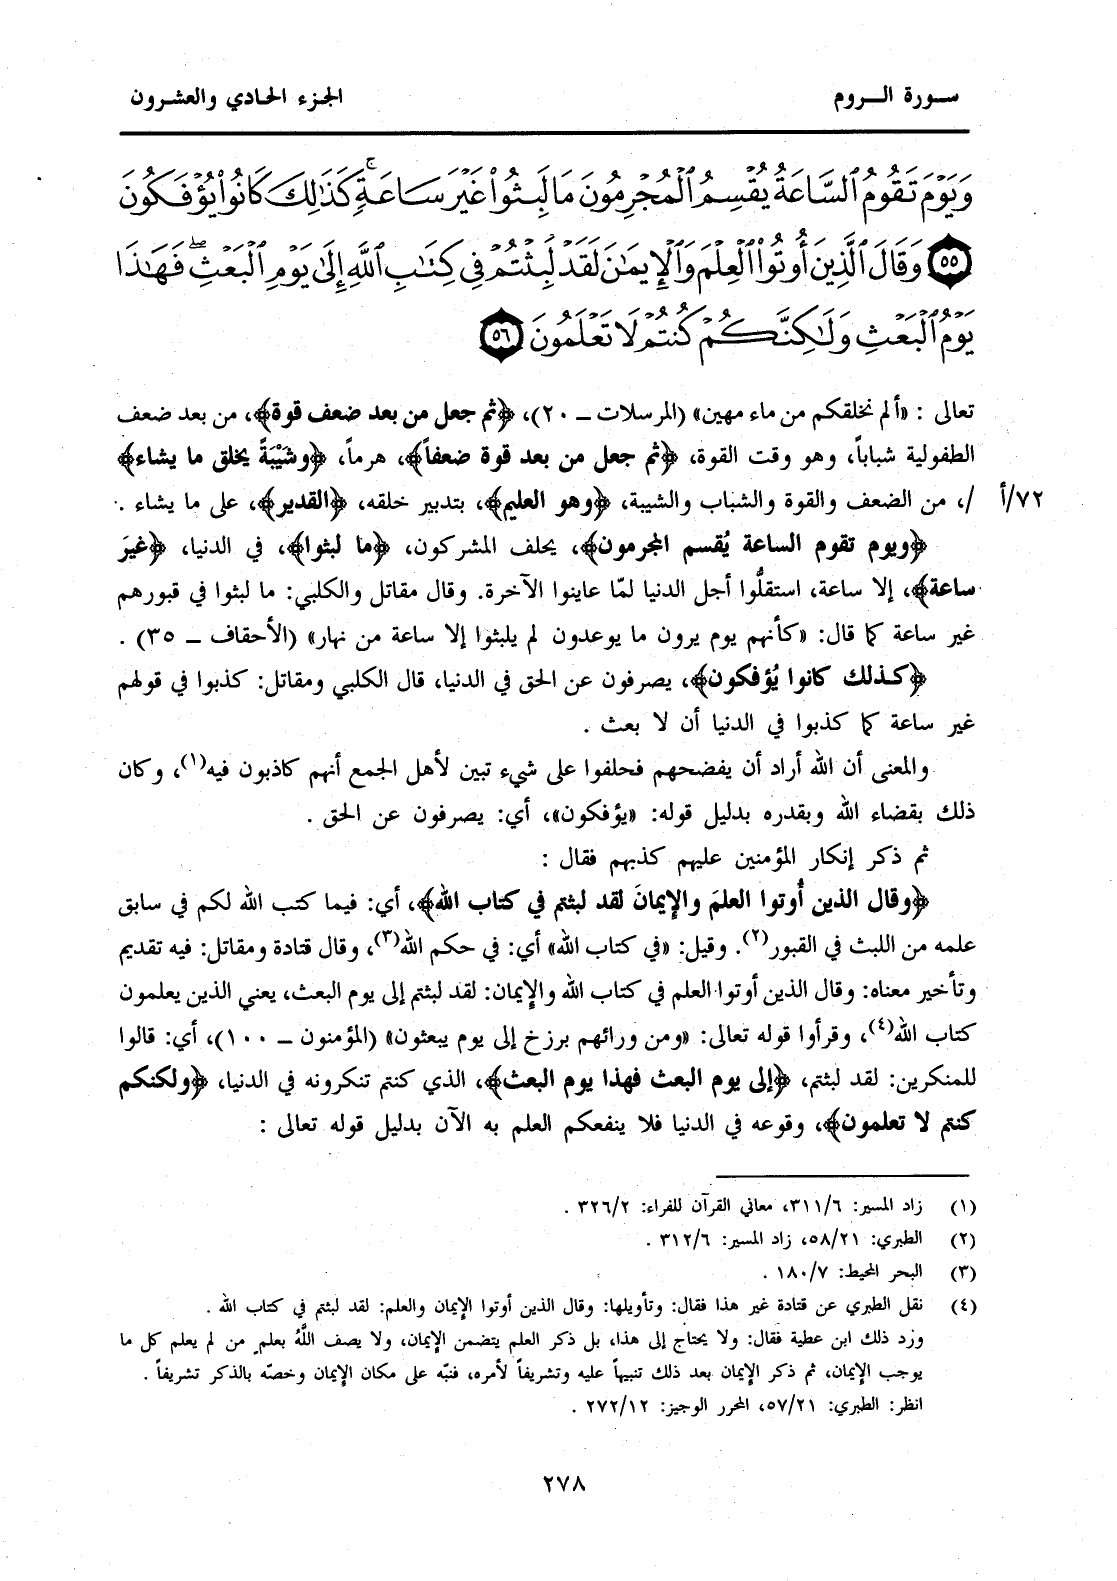 سـورة الـروم
الجزء الحادي والعشرون
وَيَوْمَ تَقُومُ ٱلسَّاعَةُ يُقْسِمُ ٱلْمُجْرِمُونَ مَا لَبِثُوا۟ غَيْرَ سَاعَةٍۚ كَذَٰلِكَ كَانُوا۟ يُؤْفَكُونَ
٥٥ وَقَالَ ٱلَّذِينَ أُوتُوا۟ ٱلْعِلْمَ وَٱلْإِيمَٰنَ لَقَدْ لَبِثْتُمْ فِى كِتَٰبِ ٱللَّهِ إِلَىٰ يَوْمِ ٱلْبَعْثِۖ فَهَٰذَا
يَوْمُ ٱلْبَعْثِ وَلَٰكِنَّكُمْ كُنتُمْ لَا تَعْلَمُونَ ٥٦
تعالى : «ألم نخلقكم من ماء مهين» (المرسلات ــ ٢٠)، ﴿ثم جعل من بعد ضعف قوة﴾، من بعد ضعف
الطفولية شباباً، وهو وقت القوة، ﴿ثم جعل من بعد قوة ضعفاً﴾، هرماً، ﴿وشَيْبَةً يخلق ما يشاء﴾
٧٢/أ /، من الضعف والقوة والشباب والشيبة، ﴿وهو العليم﴾، بتدبير خلقه، ﴿القدير﴾، على ما يشاء .
﴿ويوم تقوم الساعة يُقسم المجرمون﴾، يحلف المشركون، ﴿ما لبثوا﴾، في الدنيا، ﴿غيرَ
ساعة﴾، إلا ساعة، استقلُّوا أجل الدنيا لمّا عاينوا الآخرة. وقال مقاتل والكلبي: ما لبثوا في قبورهم
غير ساعة كما قال: «كأنهم يوم يرون ما يوعدون لم يلبثوا إلا ساعة من نهار» (الأحقاف ــ ٣٥) .
﴿كـذلك كانوا يُؤفكون﴾، يصرفون عن الحق في الدنيا، قال الكلبي ومقاتل: كذبوا في قولهم
غير ساعة كما كذبوا في الدنيا أن لا بعث .
والمعنى أن الله أراد أن يفضحهم فحلفوا على شيء تبين لأهل الجمع أنهم كاذبون فيه(١)، وكان
ذلك بقضاء الله وبقدره بدليل قوله: «يؤفكون»، أي: يصرفون عن الحق .
ثم ذكر إنكار المؤمنين عليهم كذبهم فقال :
﴿وقال الذين أُوتوا العلمَ والإيمانَ لقد لبثتم في كتاب الله﴾، أي: فيما كتب الله لكم في سابق
علمه من اللبث في القبور(٢). وقيل: «في كتاب الله» أي: في حكم الله(٣)، وقال قتادة ومقاتل: فيه تقديم
وتأخير معناه: وقال الذين أوتوا العلم في كتاب الله والإيمان: لقد لبثتم إلى يوم البعث، يعني الذين يعلمون
كتاب الله(٤)، وقرأوا قوله تعالى: «ومن ورائهم برزخ إلى يوم يبعثون» (المؤمنون ــ ١٠٠)، أي: قالوا
للمنكرين: لقد لبثتم، ﴿إلى يوم البعث فهذا يوم البعث﴾، الذي كنتم تنكرونه في الدنيا، ﴿ولكنكم
كنتم لا تعلمون﴾، وقوعه في الدنيا فلا ينفعكم العلم به الآن بدليل قوله تعالى :
(١) زاد المسير: ٣١١/٦، معاني القرآن للفراء: ٣٢٦/٢ .
(٢) الطبري: ٥٨/٢١، زاد المسير: ٣١٢/٦ .
(٣) البحر المحيط: ١٨٠/٧ .
(٤) نقل الطبري عن قتادة غير هذا فقال: وتأويلها: وقال الذين أوتوا الإيمان والعلم: لقد لبثتم في كتاب الله .
ورَد ذلك ابن عطية فقال: ولا يحتاج إلى هذا، بل ذكر العلم يتضمن الإيمان، ولا يصف اللَّهُ بعلم من لم يعلم كل ما
يوجب الإيمان، ثم ذكر الإيمان بعد ذلك تنبيهاً عليه وتشريفاً لأمره، فنبّه على مكان الإيمان وخصّه بالذكر تشريفاً .
انظر: الطبري: ٥٧/٢١، المحرر الوجيز: ٢٧٢/١٢ .
٢٧٨